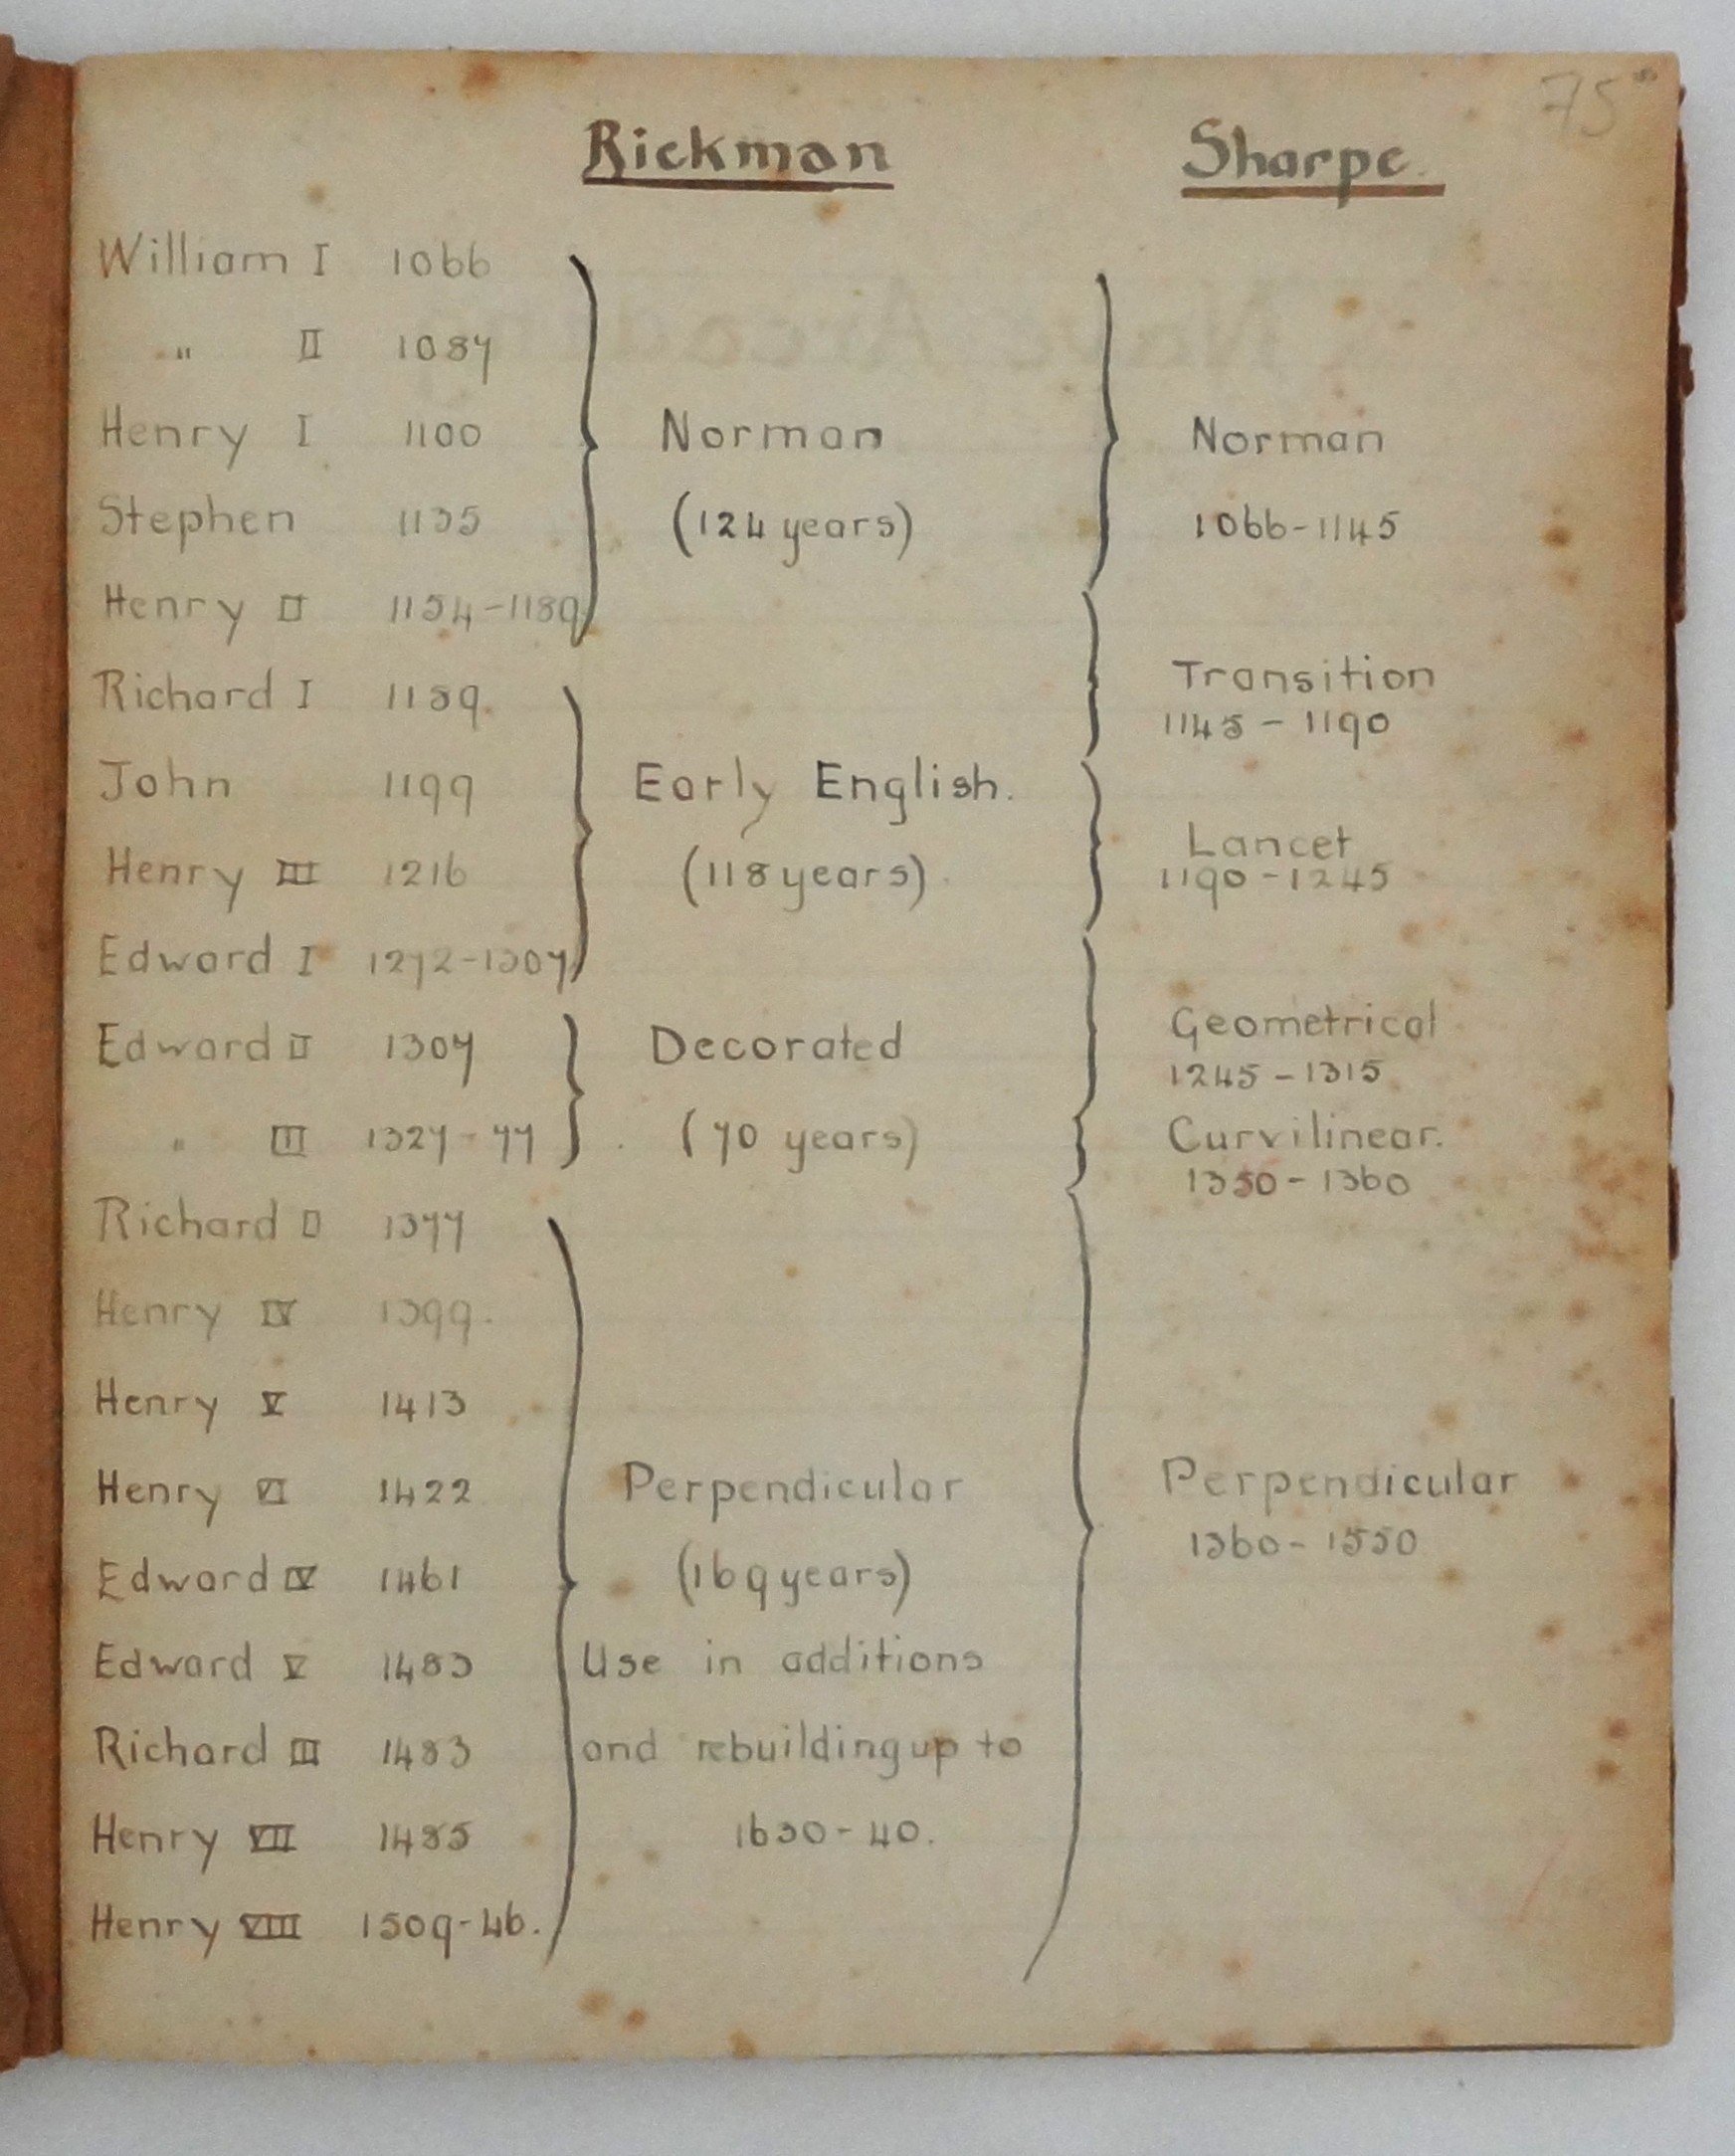 75
Rickman Sharpe.
William I 1066
" II 1087
Henry I 1100 Norman Norman
Stephen 1135 (124 years) 1066-1145
Henry II 1154-1189
Richard I 1189. Transition
1145 - 1190
John 1199 Early English.
Lancet
Henry III 1216 (118 years) 1190-1245
Edward I 1272-1307
Edward II 1307 Decorated Geometrical
1245-1315
" III 1327-77 (70 years) Curvilinear.
1350-1360
Richard II 1377
Henry IV 1399.
Henry V 1413
Henry VI 1422 Perpendicular Perpendicular
1360-1550
Edward IV 1461 (169 years)
Edward V 1483 Use in additions
Richard III 1483 and rebuilding up to
Henry VII 1485 1630-40.
Henry VIII 1509-46.